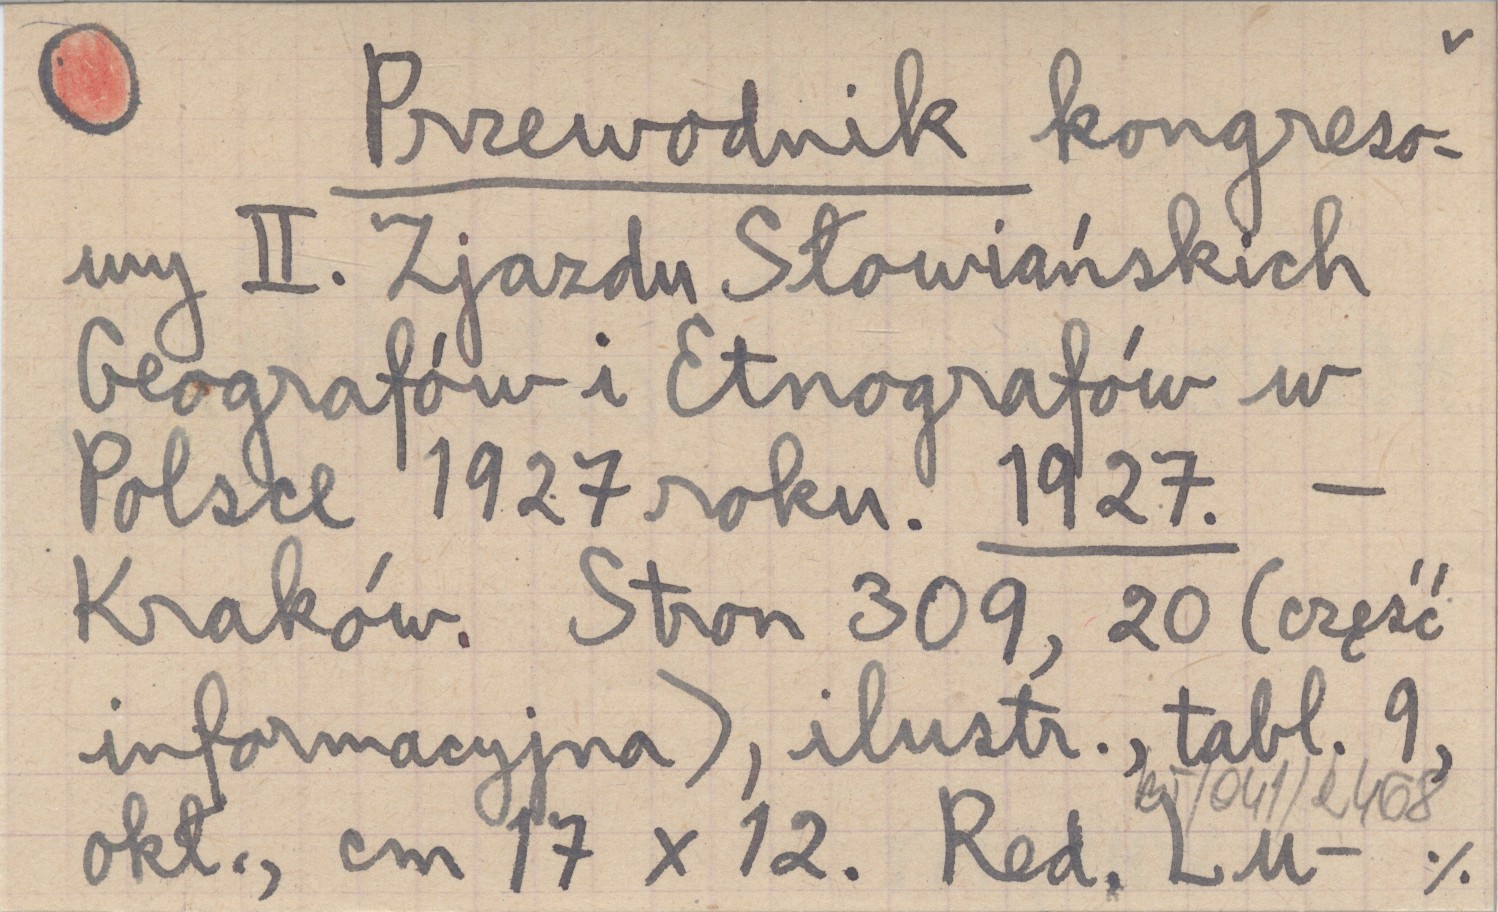 Przewodnik kongreso-
wy II. Zjazdu Słowiańskich
Geografów i Etnografów w
Polsce 1927 roku. 1927. —
Kraków. Stron 309, 20 (część
informacyjna), ilustr., tabl. 9,
/041/2468
okł., cm 17 x 12. Red. Lu- ./.